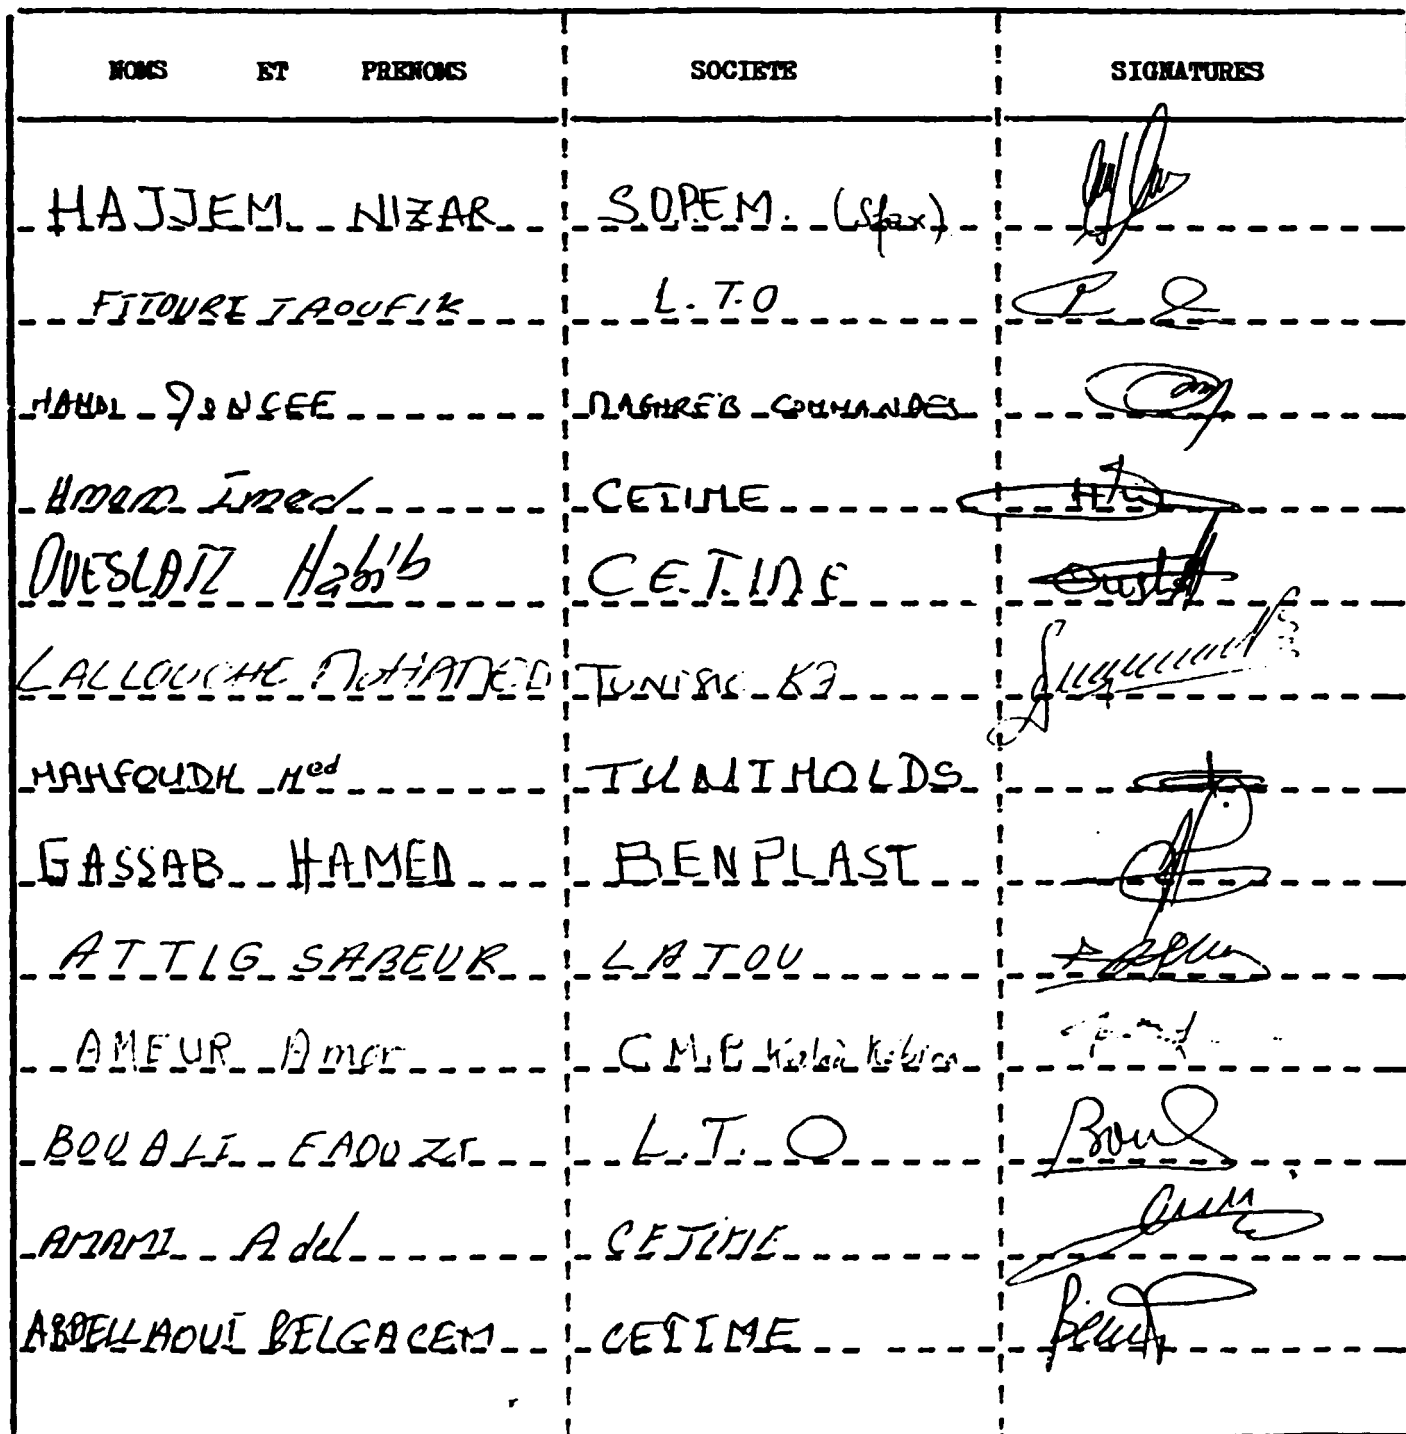 NOMS ET PRENOMS SOCIETE SIGNATURES
HAJJEM NIZAR S.OPEM. (Sfax)
FITOURI TAOUFIK L.T.O
HAMDI MAGHREB COMMANDES
Hmam Imed CETIME
OUESLATI Habib C.E.T.I.M.E
LALLOUCHE MOHAMED TUNISIE K7
MAHFOUDH Med TUNIMOLDS
GASSAB HAMED BENPLAST
ATTIG SABEUR LATOU
AMEUR Amor C.M.P
BOUALI FAOUZI L.T.O Boul
AMAMI Adel CETIME
ABDELLAOUI BELGACEM CETIME